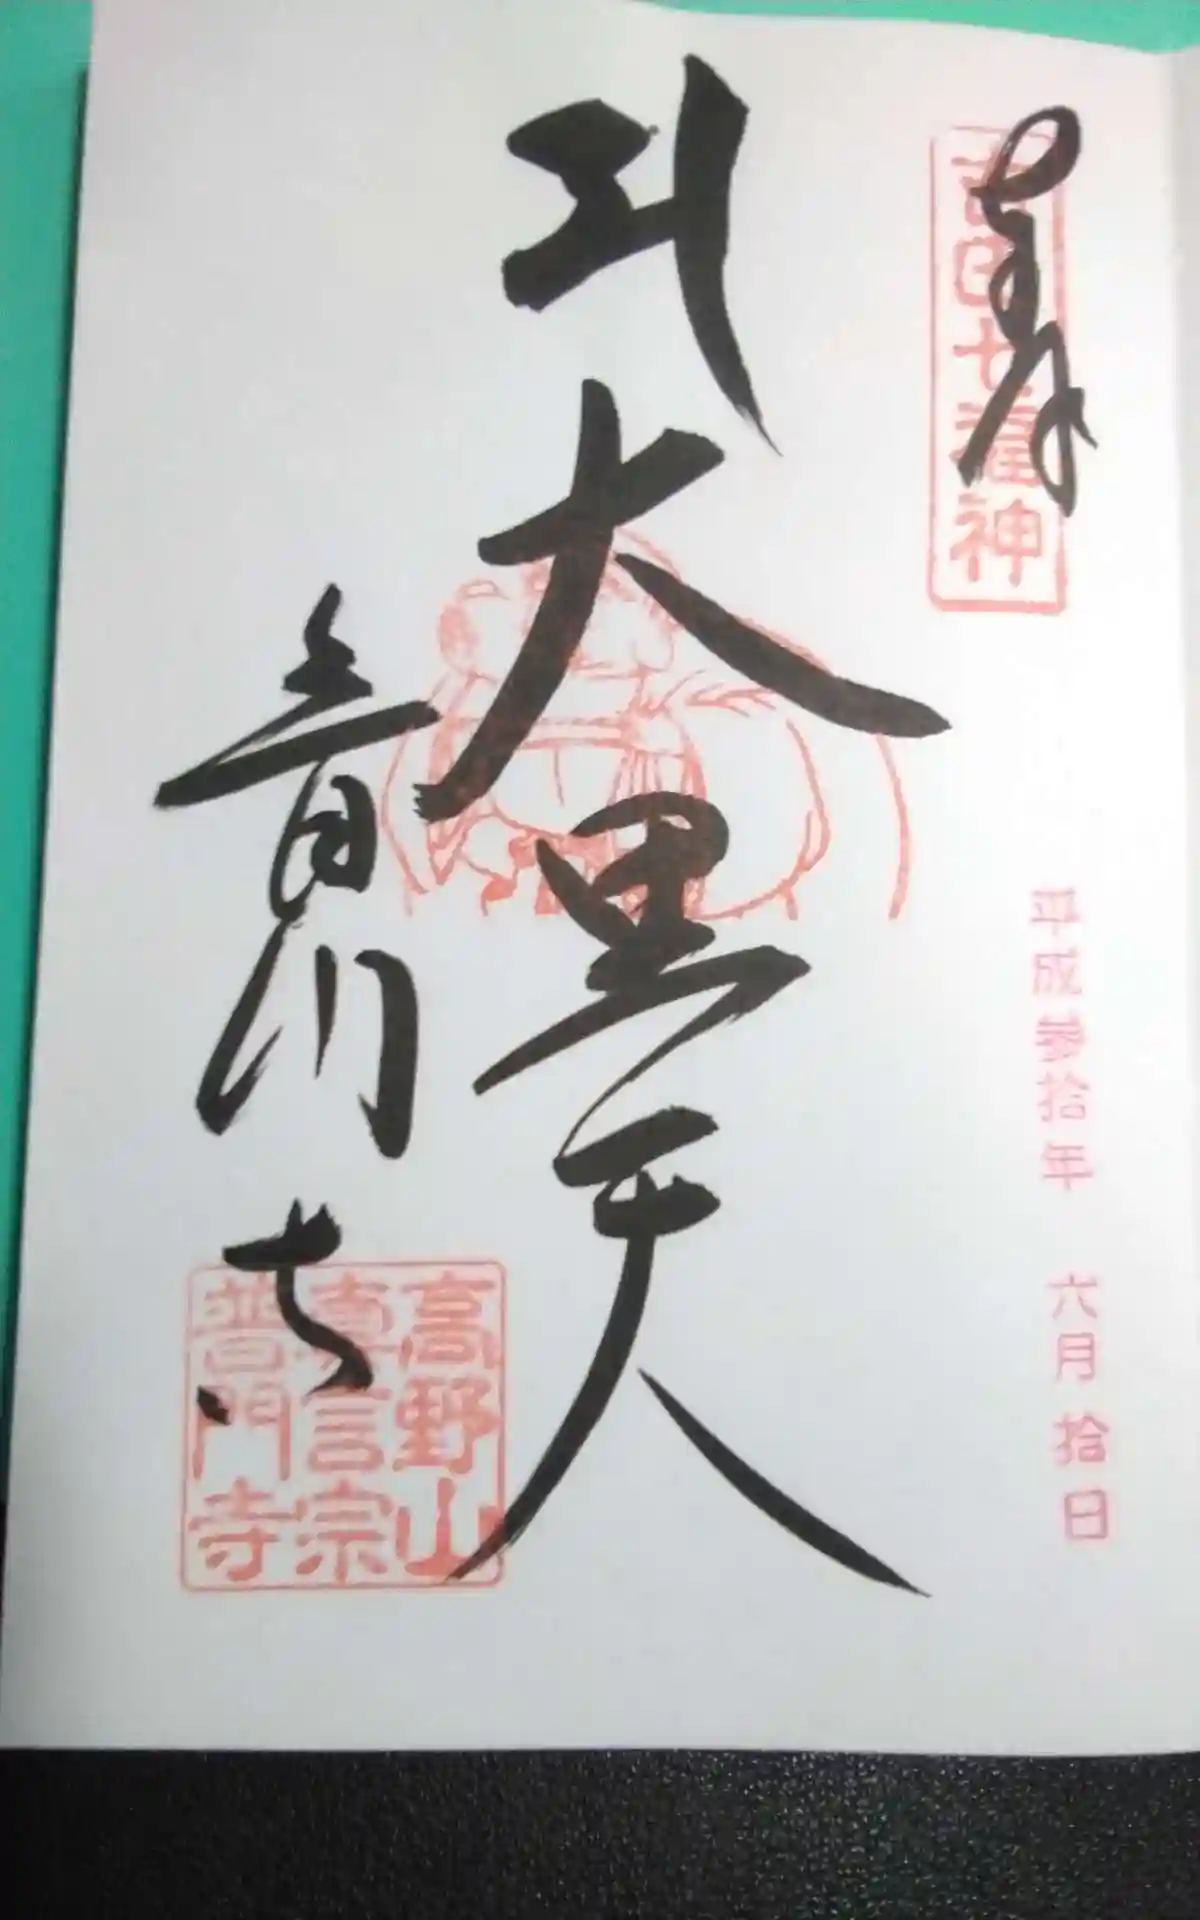 奉拝
吉田七福神
平成参拾年 六月 拾日
大黒天
普門寺
高野山
真言宗
普門寺